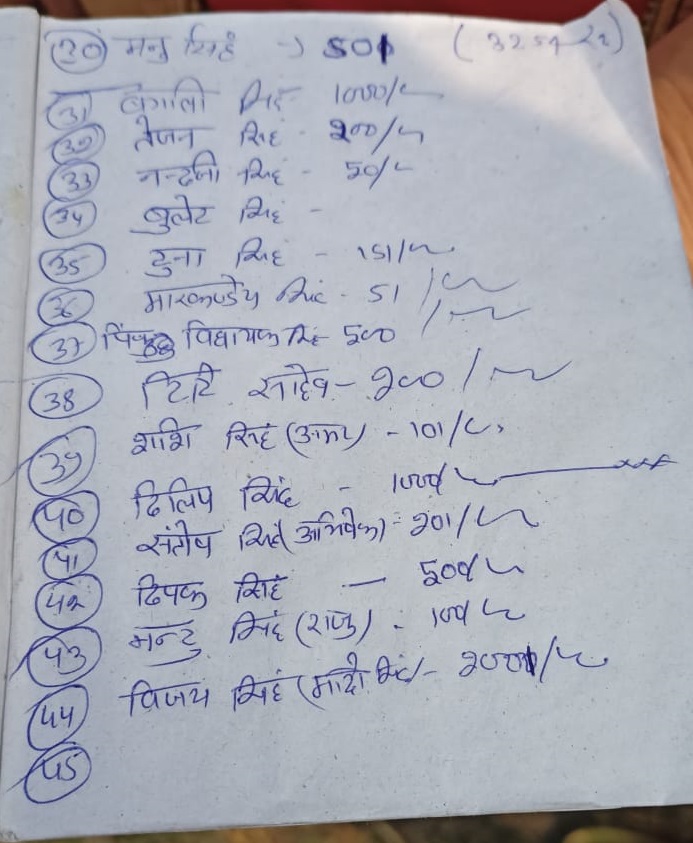 30 मनु सिंह → 501
31 बंगाली सिंह 1000/-
32 तेजन सिंह - 200/-
33 नन्दनी सिंह - 50/-
34 बुलेट सिंह -
35 टुना सिंह - 151/-
36 मारकण्डेय सिंह - 51/-
37 विधायक सिंह 500/-
38 टिटि साहेब - 200/-
39 शशि सिंह - 101/-
40 दिलिप सिंह -
41 संतोष सिंह (अभिषेक) - 201/-
42 दिपक सिंह —
43 मन्टु सिंह (राजु) -
44 विजय सिंह
45